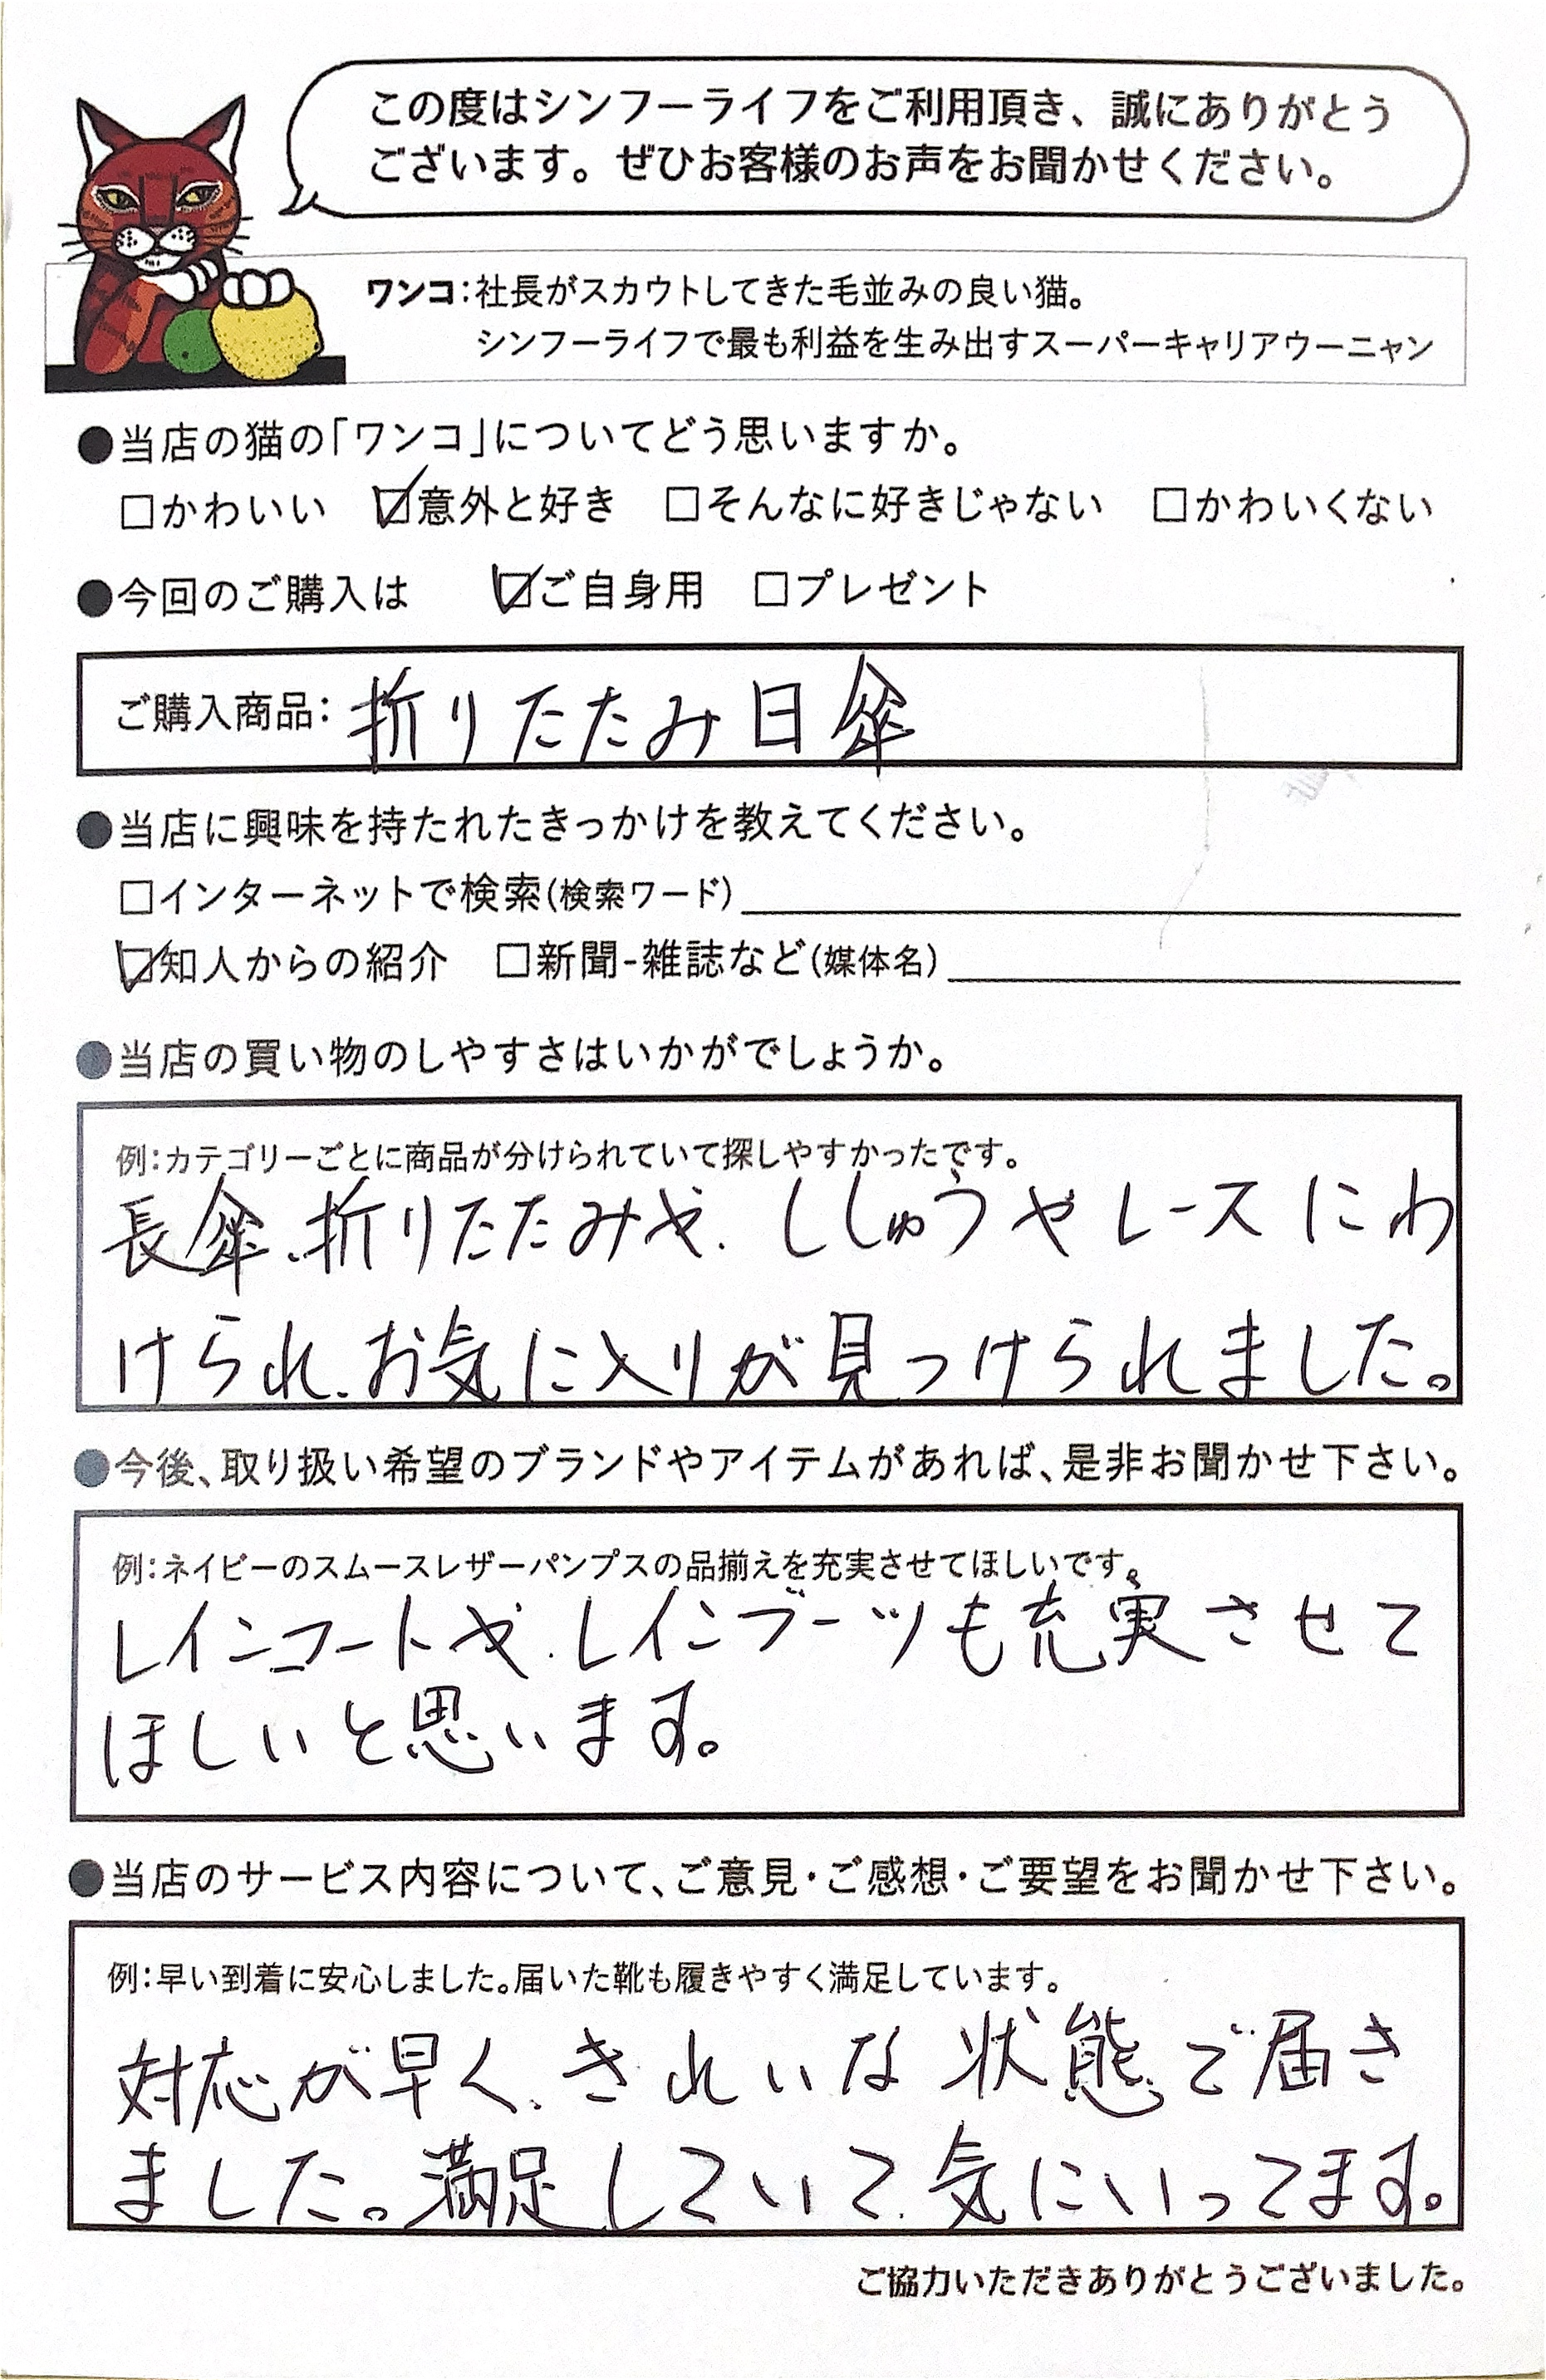 この度はシンフーライフをご利用頂き、誠にありがとう
ございます。ぜひお客様のお声をお聞かせください。
ワンコ:社長がスカウトしてきた毛並みの良い猫。
シンフーライフで最も利益を生み出すスーパーキャリアウーニャン
●当店の猫の「ワンコ」についてどう思いますか。
□かわいい ☑意外と好き □そんなに好きじゃない □かわいくない
●今回のご購入は ☑ご自身用 □プレゼント
ご購入商品: 折りたたみ日傘
●当店に興味を持たれたきっかけを教えてください。
□インターネットで検索(検索ワード)
☑知人からの紹介 □新聞-雑誌など(媒体名)
●当店の買い物のしやすさはいかがでしょうか。
例:カテゴリーごとに商品が分けられていて探しやすかったです。
長傘、折りたたみや、ししゅうやレースにわ
けられ、お気に入りが見つけられました。
●今後、取り扱い希望のブランドやアイテムがあれば、是非お聞かせ下さい。
例:ネイビーのスムースレザーパンプスの品揃えを充実させてほしいです。
レインコートや、レインブーツも充実させて
ほしいと思います。
●当店のサービス内容について、ご意見・ご感想・ご要望をお聞かせ下さい。
例:早い到着に安心しました。届いた靴も履きやすく満足しています。
対応が早く、きれいな状態で届き
ました。満足していて、気にいってます。
ご協力いただきありがとうございました。